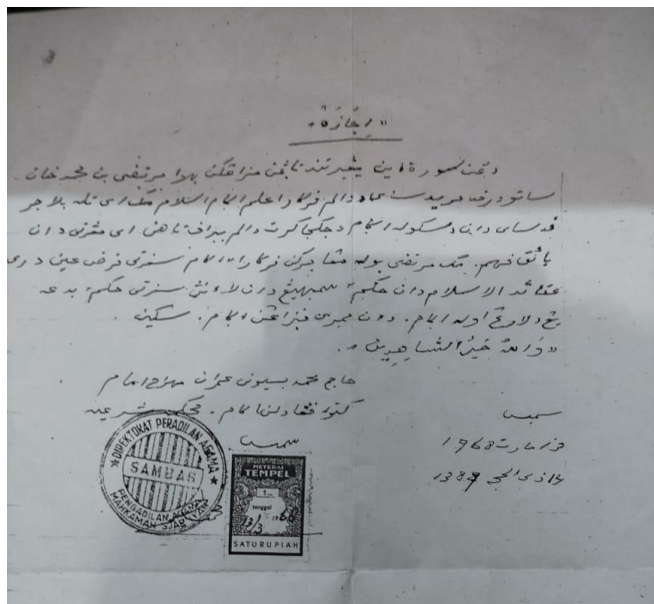 "اِجَازَة"
دڠن سورة اين يڠبرتندتاڠن منراڠكن بهوا مرتضى بن محمد خان
ساتو درفد مريد سيا دالم فركارا علم اڬام اسلام مك اي تله بلاجر
فد ساي دان دسكوله اڬام دالم ببراف تاهن اي مڠرتي دان
باڽق فهم. مك مرتضى بوله مڠاجركن فركارا اڬام سفرتي فرض عين دري
عقائد الاسلام دان حكم٢ سمبهيڠ دان لاءينڽ سفرتي حكم٢ بدعه
يڠ دلارڠ اوليه اڬام. دان ممبري فنراڠن اڬام. سكين.
"وَاللهُ خَيْرُ الشَّاهِدِين".
حاج محمد بسيوني عمران مهراج امام
كتوا فڠاديلن اڬام. محكمه شرعيه
سمبس
سمبس
مارت 1968
ذي الحجه 1387
DIREKTORAT PERADILAN AGAMA
SAMBAS
PENGADILAN AGAMA
MAHKAMAH SJAR'IJAH
METERAI
TEMPEL
1
tanggal
13/3 1968
SATU RUPIAH